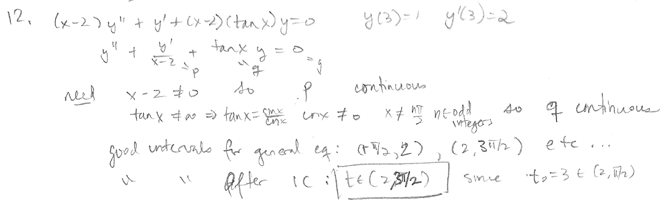 12. (x-2)y" + y' + (x-2)(tan x)y=0 y(3)=1 y'(3)=2
y" + y'/(x-2) + tan x y = 0
=p "q =g
need x-2 ≠ 0 so p continuous
tan x ≠ ∞ ⇒ tan x = sin x/cos x cos x ≠ 0 x ≠ nπ/2 n∈odd integers so q continuous
good intervals for general eq: (π/2, 2), (2, 3π/2) etc...
" " after IC: t∈(2, 3π/2) since t₀=3 ∈ (2, π/2)